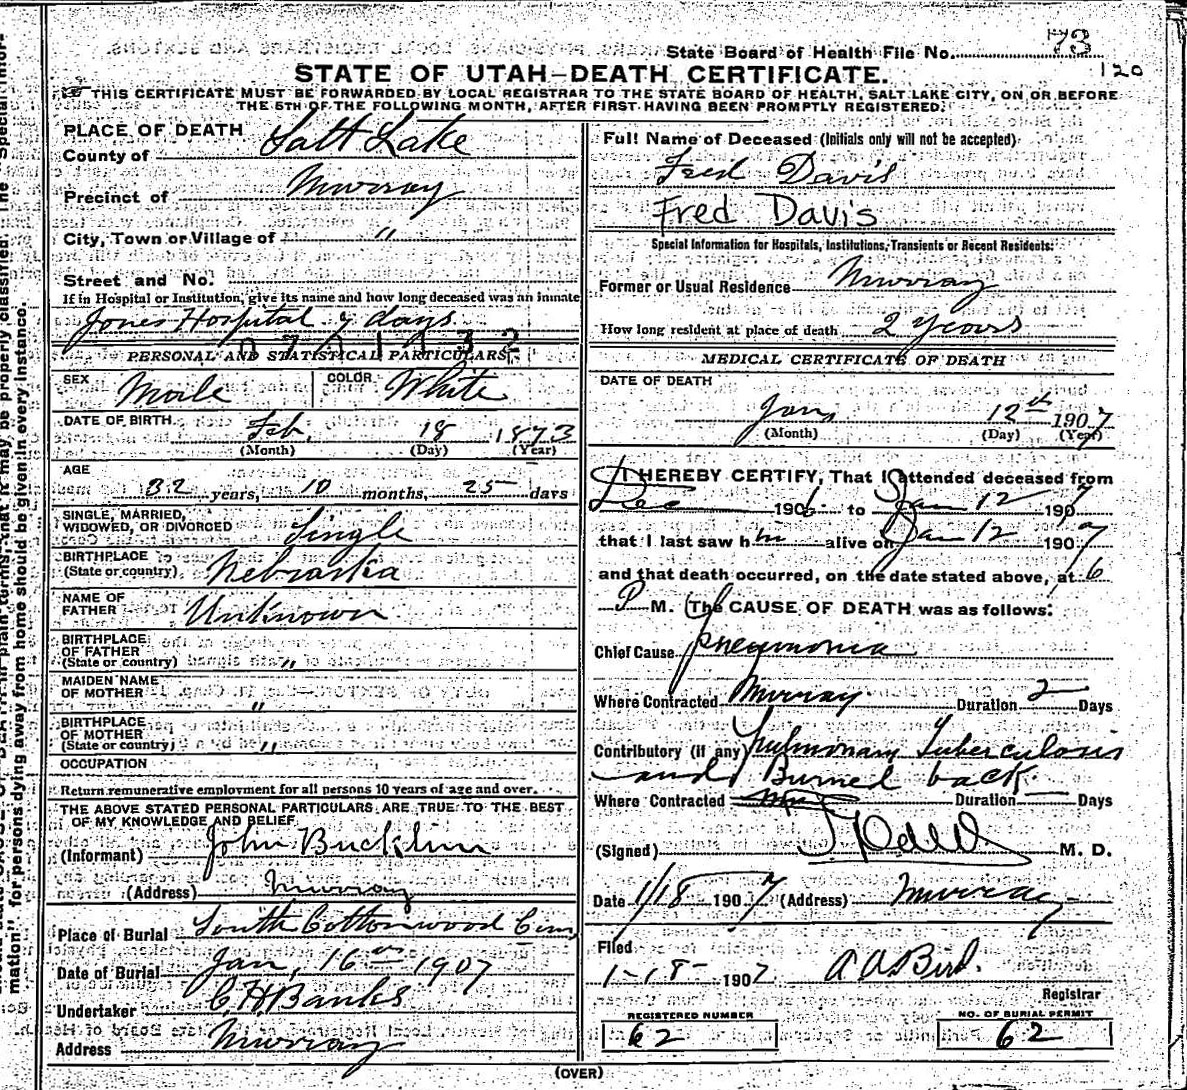 State Board of Health File No. 73
120
STATE OF UTAH—DEATH CERTIFICATE.
THIS CERTIFICATE MUST BE FORWARDED BY LOCAL REGISTRAR TO THE STATE BOARD OF HEALTH, SALT LAKE CITY, ON OR BEFORE
THE 5TH OF THE FOLLOWING MONTH, AFTER FIRST HAVING BEEN PROMPTLY REGISTERED.
PLACE OF DEATH
County of Salt Lake
Precinct of Murray
City, Town or Village of "
Street and No.
If in Hospital or Institution, give its name and how long deceased was an inmate
Jones Hospital 7 days
PERSONAL AND STATISTICAL PARTICULARS
SEX Male COLOR White
DATE OF BIRTH Feb. 18 1873
(Month) (Day) (Year)
AGE
32 years, 10 months, 25 days
SINGLE, MARRIED,
WIDOWED, OR DIVORCED Single
BIRTHPLACE
(State or country) Nebraska
NAME OF
FATHER Unknown
BIRTHPLACE
OF FATHER
(State or country) "
MAIDEN NAME
OF MOTHER "
BIRTHPLACE
OF MOTHER
(State or country) "
OCCUPATION
Return remunerative employment for all persons 10 years of age and over.
THE ABOVE STATED PERSONAL PARTICULARS ARE TRUE TO THE BEST
OF MY KNOWLEDGE AND BELIEF
(Informant) John Bucklin
(Address) Murray
Place of Burial South Cottonwood Cem
Date of Burial Jan, 16th 1907
Undertaker C H Banks
Address Murray
Full Name of Deceased (Initials only will not be accepted)
Fred Davis
Fred Davis
Special Information for Hospitals, Institutions, Transients or Recent Residents.
Former or Usual Residence Murray
How long resident at place of death 2 years
MEDICAL CERTIFICATE OF DEATH
DATE OF DEATH
Jan 12th 1907
(Month) (Day) (Year)
I HEREBY CERTIFY, That I attended deceased from
Dec 1906 to Jan 12 1907
that I last saw him alive on Jan 12 1907
and that death occurred, on the date stated above, at 6
P M. The CAUSE OF DEATH was as follows:
Chief Cause pneumonia
Where Contracted Murray Duration 2 Days
Contributory (if any) pulmonary Tuberculosis
and Burned back
Where Contracted Duration — Days
(Signed) M. D.
Date 1/18 1907 (Address) Murray
Filed
1-18- 1907 A A Bird.
Registrar
REGISTERED NUMBER
62
NO. OF BURIAL PERMIT
62
(OVER)
mation" for persons dying away from home should be given in every instance.